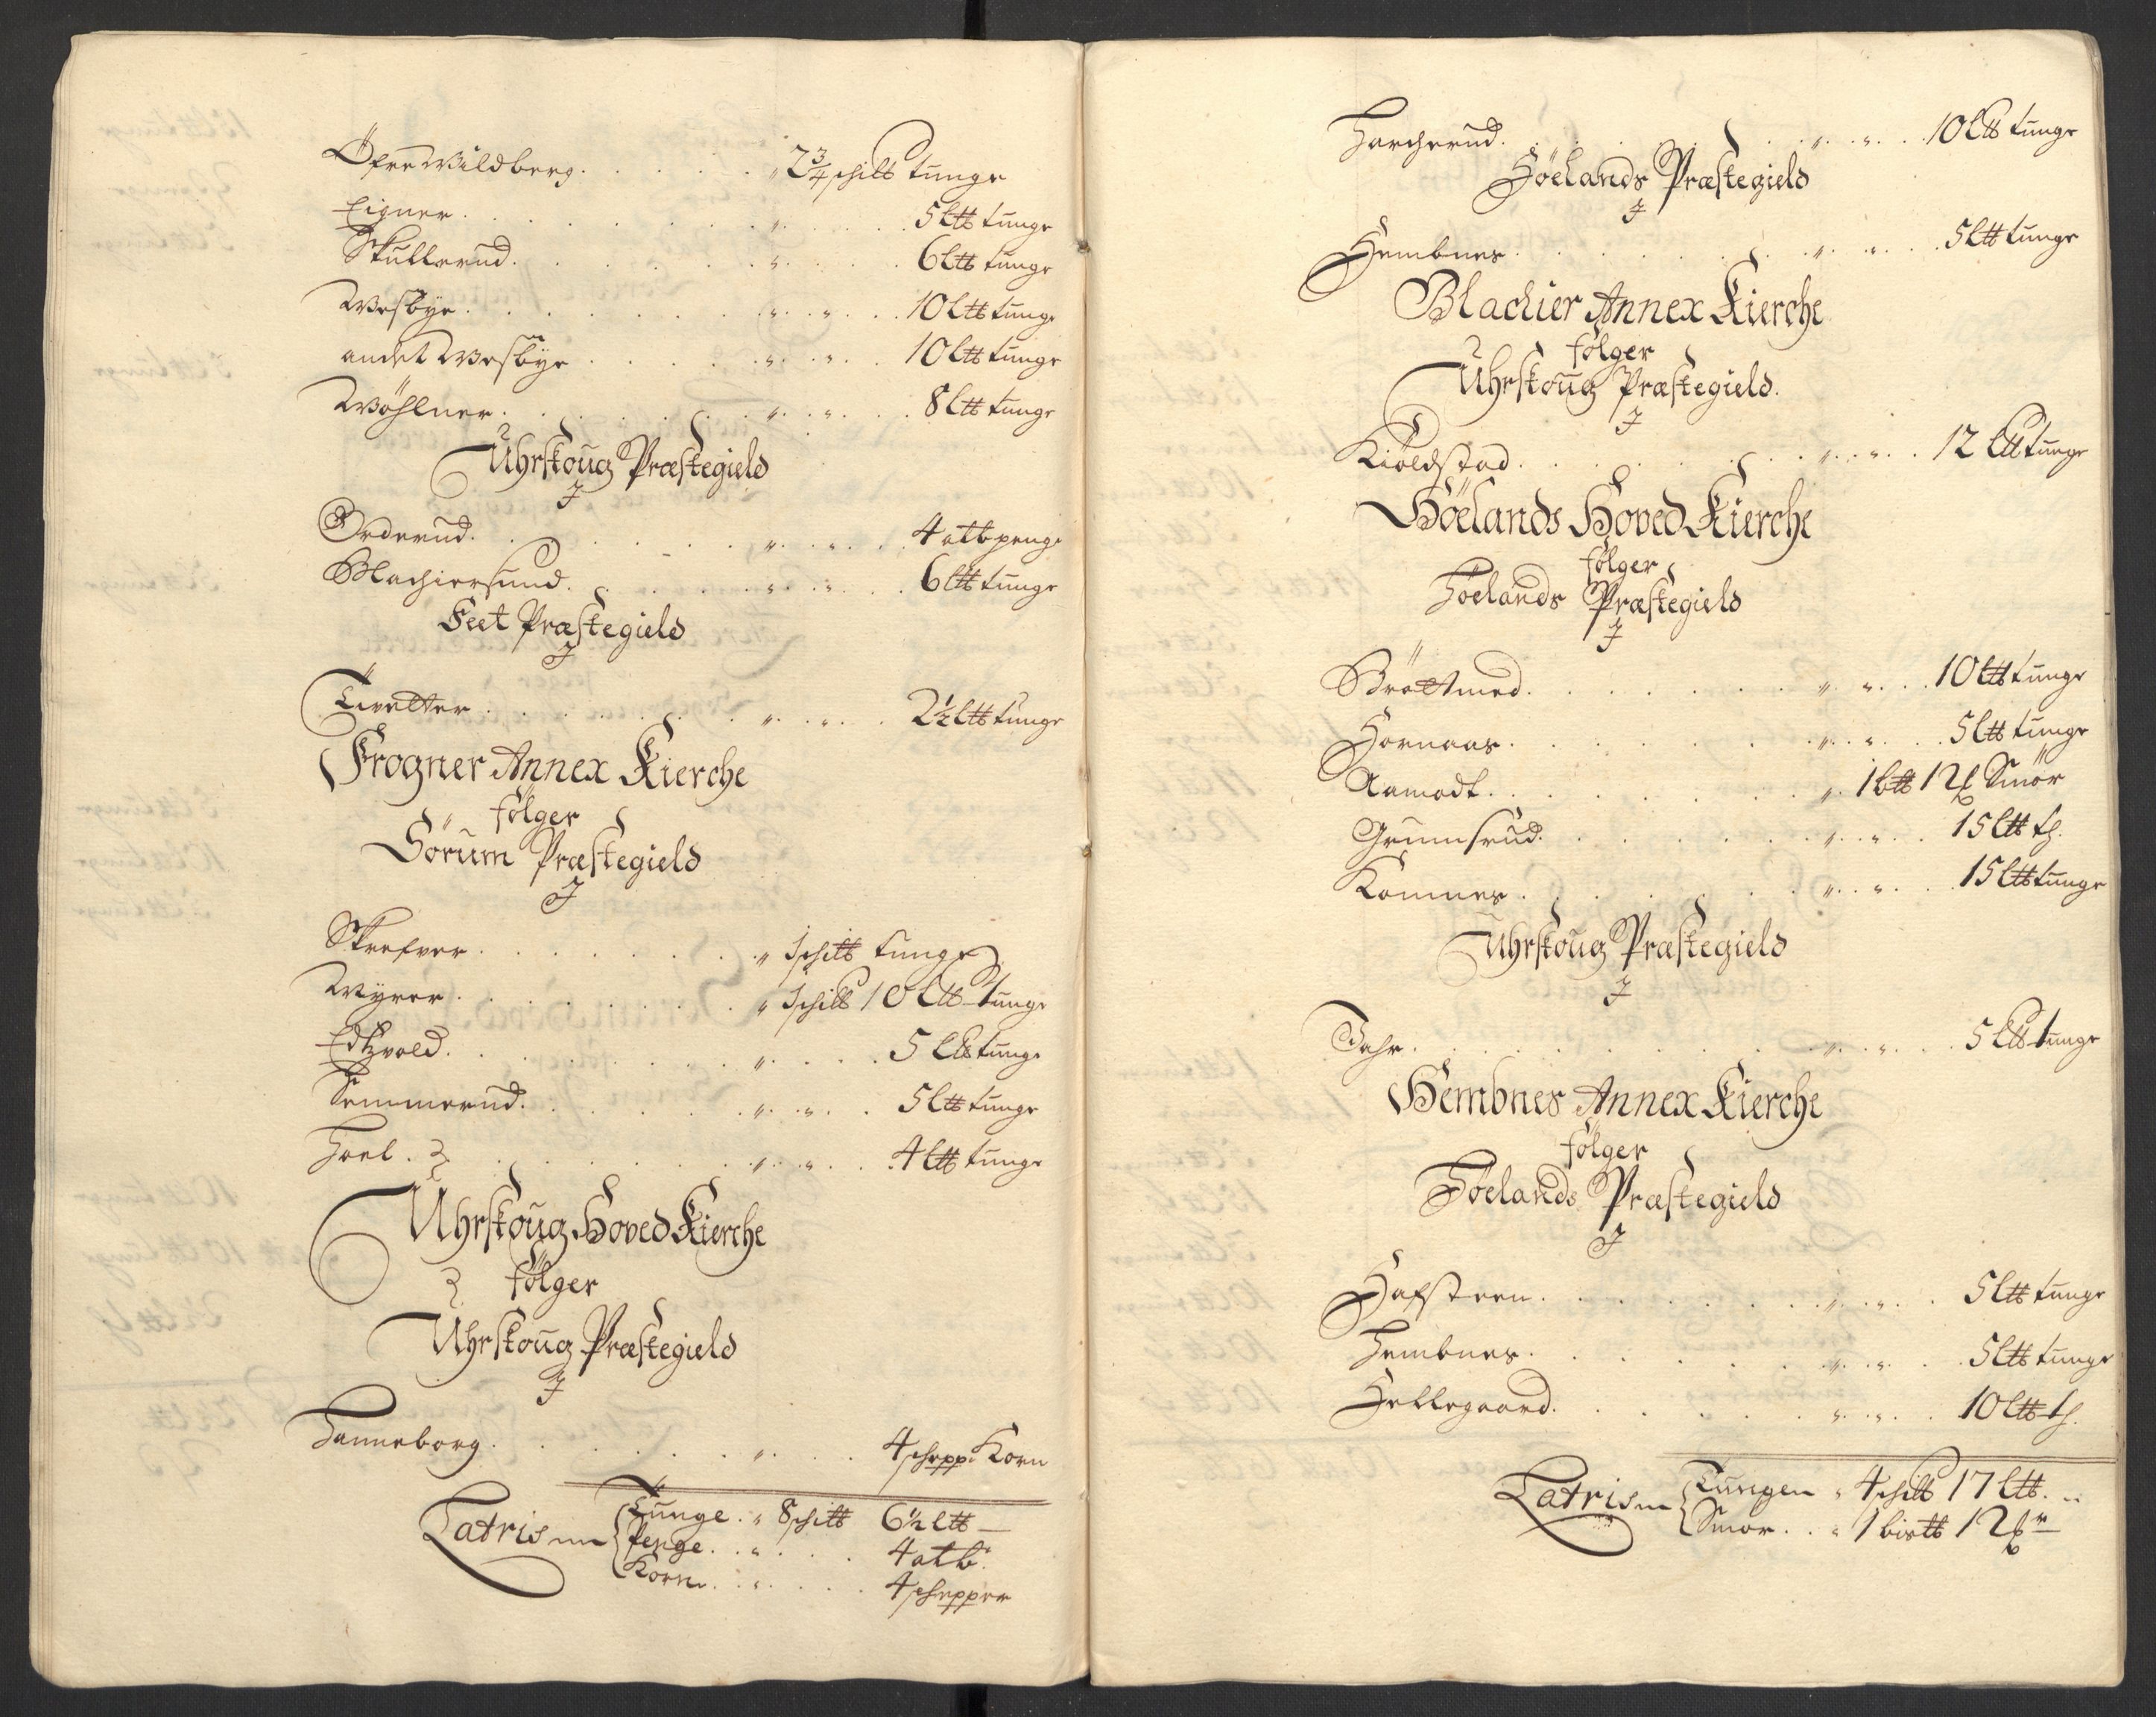 Öfre Wildberg . . . . . " 2¾ schit℔ tunge
Eigner . . . . . " . . . 5 Lit℔ tunge
Skullerud . . . . . " . . . 6 Lit℔ tunge
Wesbye . . . . . " . " . . 10 Lit℔ tunge
andet Wesbye . . . . " . " . . 10 Lit℔ tunge
Wöhlner . . . . . " . " . . 8 Lit℔ tunge
Uhrskoug Præstegield
J
Orderud . . . . . " . " . . 4 alb penge
Blachiersund . . . . " . " . . 6 Lit℔ tunge
Feet Præstegield
J
Tvetter . . . . . " . " . . 2½ Lit℔ tunge
Frogner Annex Kierche
följer
Sörum Præstegield
J
Skrefver . . . . . " 1 schit℔ tunge
Wÿrer . . . . . " 1 schit℔ 10 Lit℔ tunge
Edtzvold . . . . . " . . . 5 Lit℔ tunge
Semmerud . . . . " . " . . 5 Lit℔ tunge
Hoel . . . . . " . " . . 4 Lit℔ tunge
Uhrskoug Hoved Kierche
fölger
Uhrskoug Præstegield
J
Hanneborg . . . . . " . . . 4 schepp: Korn
Latris Tunge . " 8 schit℔ 6½ Lit℔
Penge . . " . . . 4 alb:
Korn . . " . . . 4 schepper
Harcherud . . . . . " . " . . 10 Lit℔ tunge
Höelands Præstegield
J
Hembnes . . . . . " . " . . 5 Lit℔ tunge
Blachier Annex Kierche
fölger
Uhrskoug Præstegield.
J
Kiölstad . . . . . " . " . . 12 Lit℔ tunge
Höelands Hoved Kierche
fölger
Höelands Præstegield
J
Bröttmed . . . . . " . " . . 10 Lit℔ tunge
Hornaas . . . . . " . " . . 5 Lit℔ tunge
Aamodt . . . . . " . 1 b℔ 12 Smör
Grumsrud . . . . . " . " . . 15 Lit℔ t.
Komnes . . . . . " . " . . 15 Lit℔ tunge
Uhrskoug Præstegield
J
Dahr . . . . . " . " . . 5 Lit℔ tunge
Hembnes Annex Kierche
fölger
Höelands Præstegield
J
Hafsteen . . . . . " . " . . 5 Lit℔ tunge
Hembnes . . . . . " . " . . 5 Lit℔ tunge
Hellegaard . . . . . " . " . . 10 Lit℔ t.
Latris Tungen " 4 schit℔ 17 Lit℔
Smör . . " 1 bis℔ 12